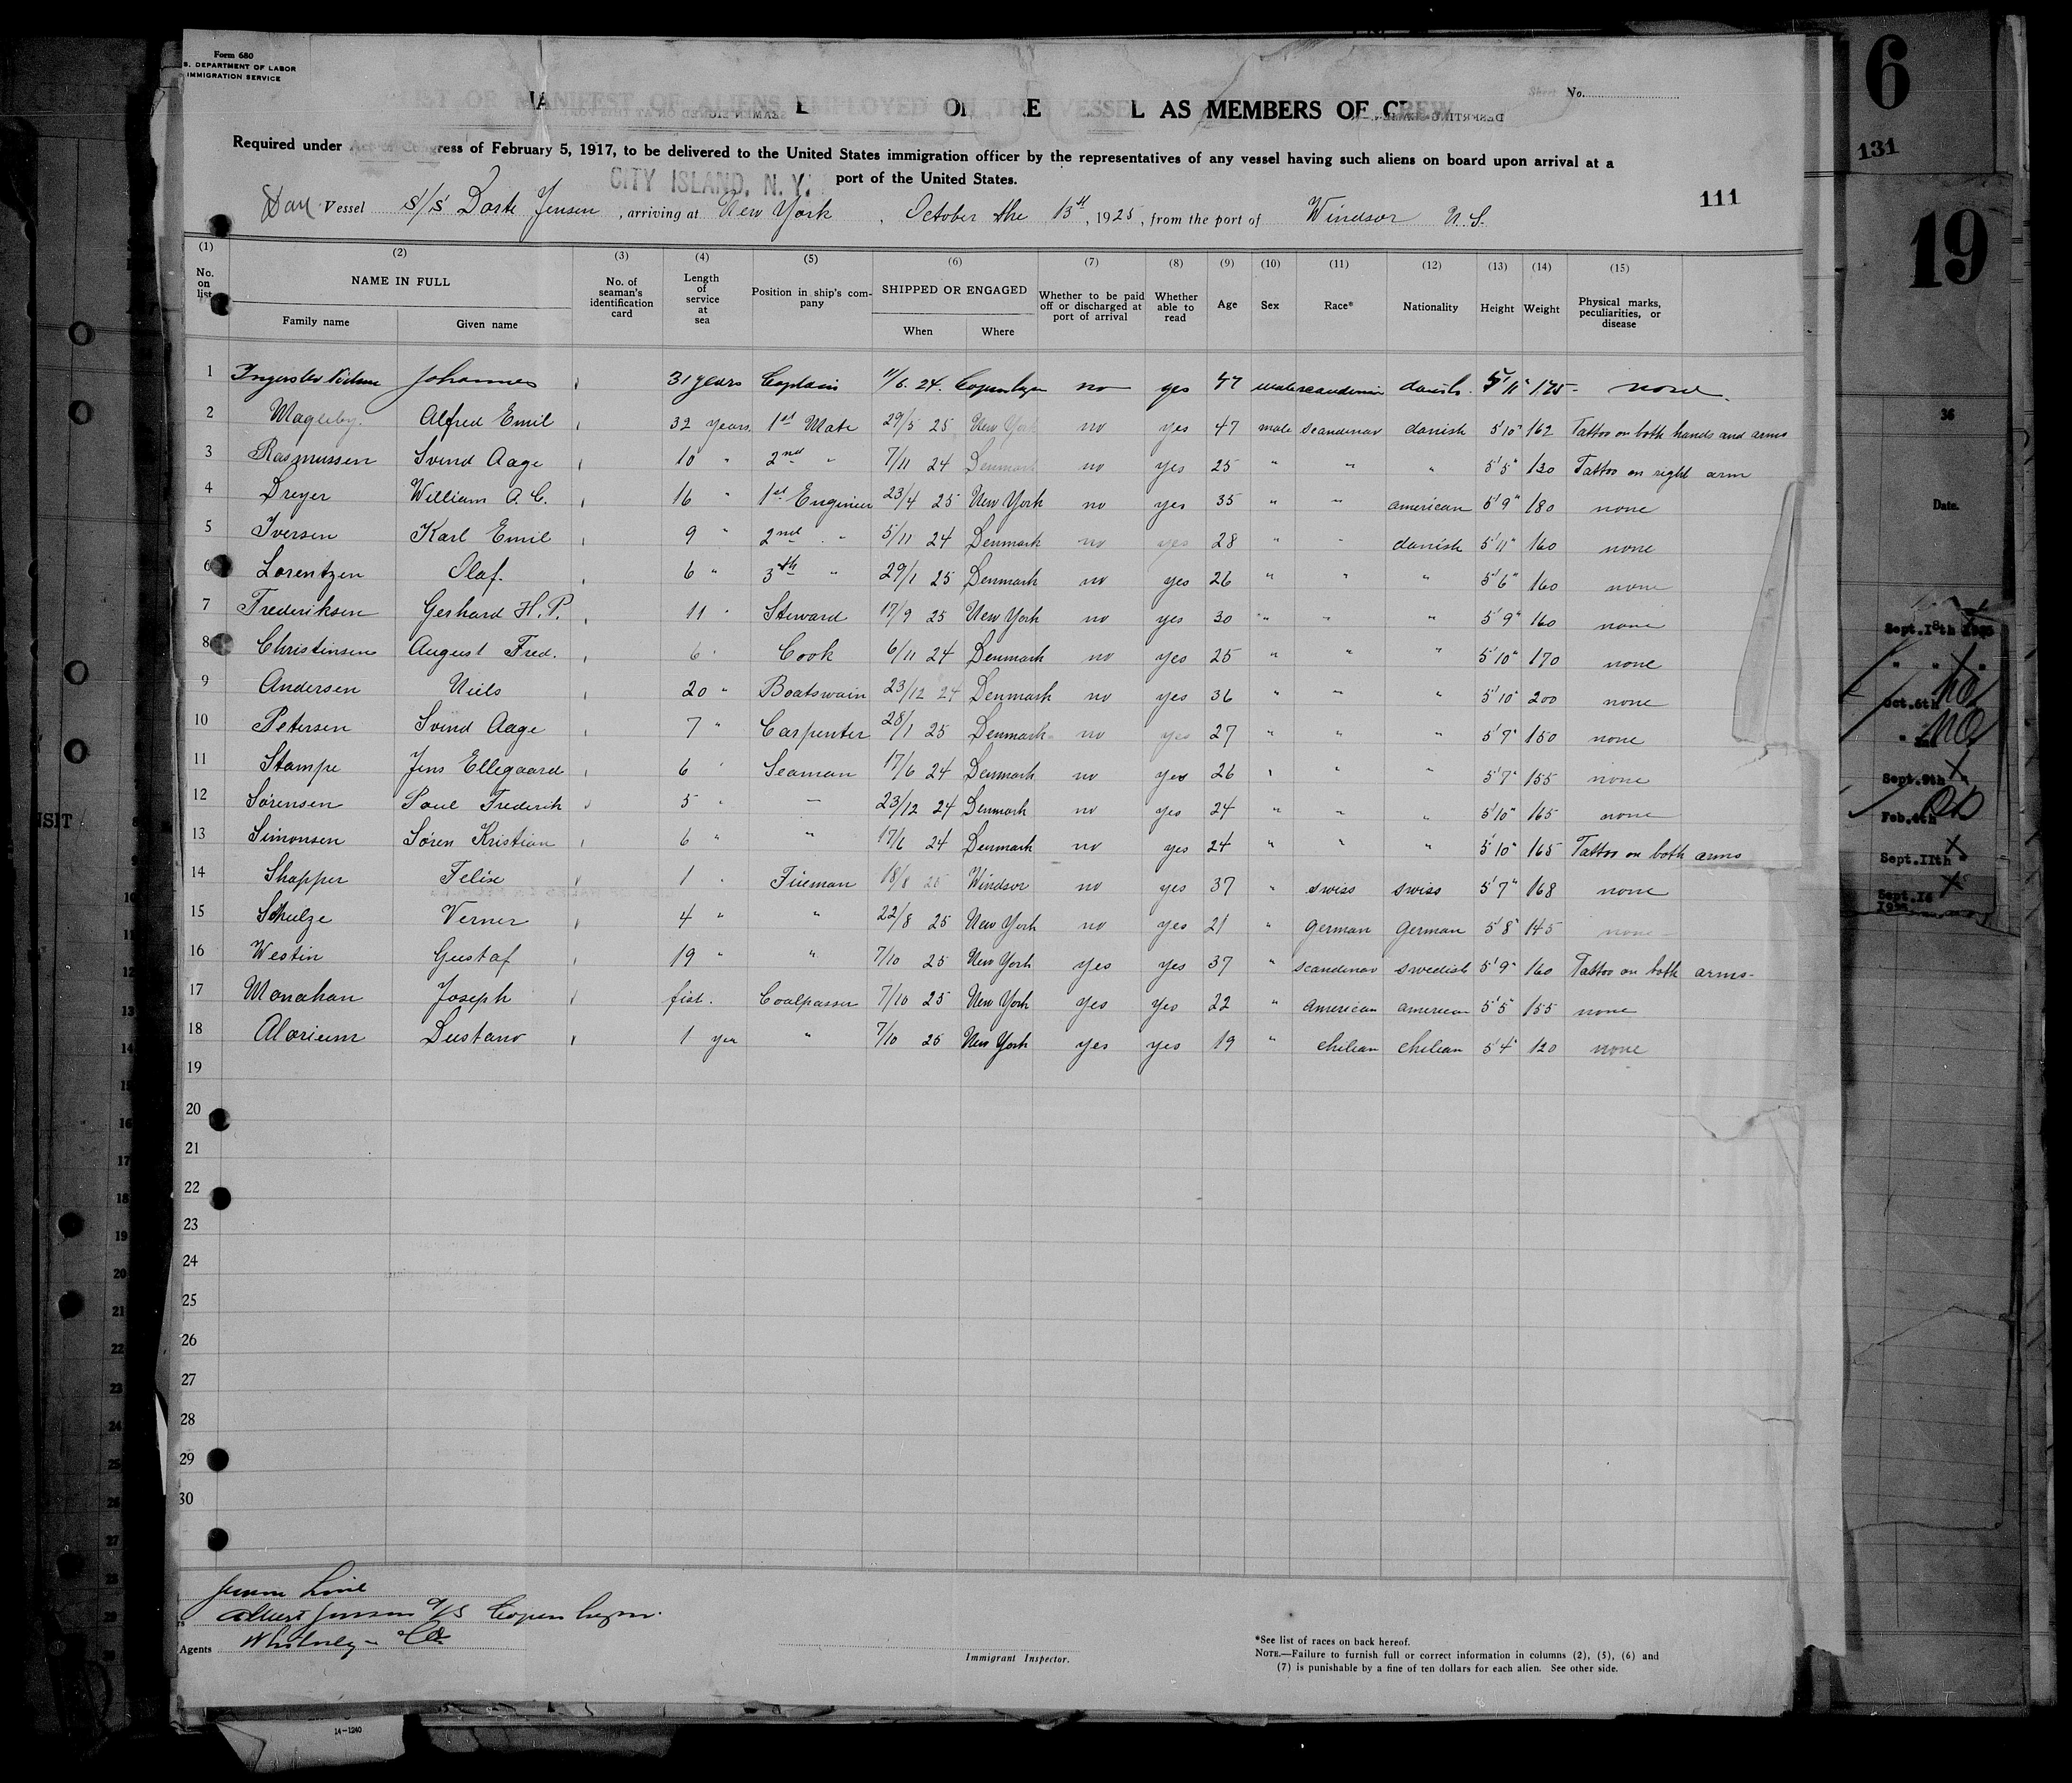 Form 680
S. DEPARTMENT OF LABOR
IMMIGRATION SERVICE
LIST OR MANIFEST OF ALIENS EMPLOYED ON THE VESSEL AS MEMBERS OF CREW
No.
Required under Act of Congress of February 5, 1917, to be delivered to the United States immigration officer by the representatives of any vessel having such aliens on board upon arrival at a
port of the United States.
CITY ISLAND, N. Y.
111
Dan Vessel S/S Dorte Jensen, arriving at New York, October the 13th, 1925, from the port of Windsor N.S.
(1) (2) (3) (4) (5) (6) (7) (8) (9) (10) (11) (12) (13) (14) (15)
No. on list
NAME IN FULL
Family name Given name
No. of seaman's identification card
Length of service at sea
Position in ship's company
SHIPPED OR ENGAGED
When Where
Whether to be paid off or discharged at port of arrival
Whether able to read
Age Sex Race* Nationality Height Weight
Physical marks, peculiarities, or disease
1 Johannes 31 years Captain 11/6. 24. Copenhagen no yes 47 male danish. 5'11" 175 - none.
2 Magleby. Alfred Emil 32 years. 1st Mate 29/5 25 New York no yes 47 male scandinav danish 5'10" 162 Tattoo on both hands and arms
3 Rasmussen Svend Aage 10 " 2nd " 7/11 24 Denmark no yes 25 " " " 5'5" 130 Tattoo on right arm
4 Dreyer William A. C. 16 " 1st Engineer 23/4 25 New York no yes 35 " " american 5'9" 180 none
5 Iversen Karl Emil 9 " 2nd " 5/11 24 Denmark no yes 28 " " danish 5'11" 160 none
6 Lorentzen Olaf. 6 " 3th " 29/1 25 Denmark no yes 26 " " " 5'6" 160 none
7 Frederiksen Gerhard H. P. 11 " Steward 17/9 25 New York no yes 30 " " " 5'9" 160 none
8 Christensen August Fred. 6 " Cook 6/11 24 Denmark no yes 25 " " " 5'10" 170 none
9 Andersen Niels 20 " Boatswain 23/12 24 Denmark no yes 36 " " " 5'10" 200 none
10 Petersen Svend Aage 7 " Carpenter 28/1 25 Denmark no yes 27 " " " 5'9" 150 none
11 Stampe Jens Ellegaard 6 " Seaman 17/6 24 Denmark no yes 26 " " " 5'7" 155 none
12 Sørensen Poul Frederik 5 " — 23/12 24 Denmark no yes 24 " " " 5'10" 165 none
13 Simonsen Søren Kristian 6 " " 17/6 24 Denmark no yes 24 " " " 5'10" 165 Tattoo on both arms
14 Shapper Felix 1 " Fireman 18/8 25 Windsor no yes 37 " swiss swiss 5'7" 168 none
15 Schulze Verner 4 " " 22/8 25 New York no yes 21 " german german 5'8" 145 none
16 Westin Gustaf 19 " " 7/10 25 New York yes yes 37 " scandinav swedish 5'9" 160 Tattoo on both arms
17 Monahan Joseph fist. Coalpasser 7/10 25 New York yes yes 22 " american american 5'5" 155 none
18 1 yea " 7/10 25 New York yes yes 19 " chilean chilean 5'4" 120 none
19
20
21
22
23
24
25
26
27
28
29
30
Jensen Line
Albert Jensen A/S Copenhagen.
Agents Whitney & Co
Immigrant Inspector.
*See list of races on back hereof.
NOTE.—Failure to furnish full or correct information in columns (2), (5), (6) and
(7) is punishable by a fine of ten dollars for each alien. See other side.
14-1240
6
131
19
36
Date.
Sept.18th
Oct.6th
Sept.9th
Feb.4th
Sept.11th
Sept.16